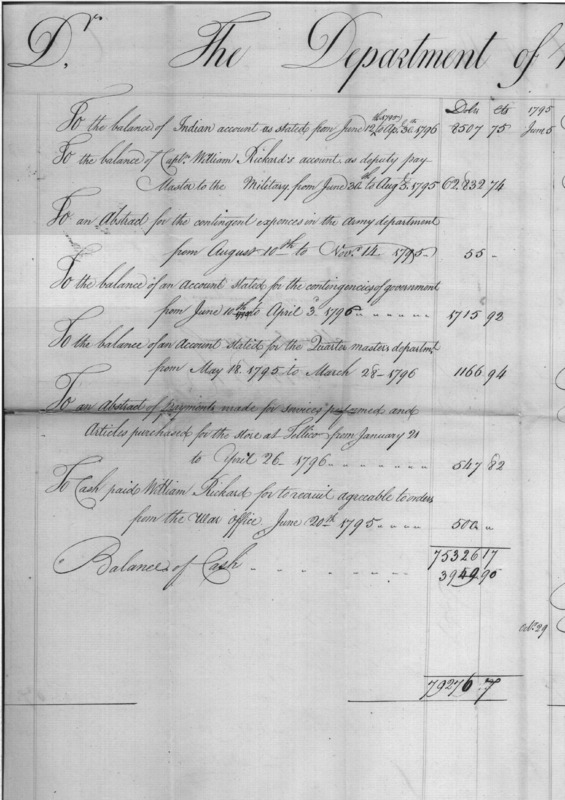 Dr. The Department of
Dolrs Cts 1795
To the balance of Indian account as stated from June 12 1795 to Apl. 30th 1796 8507 75 June 5
To the balance of Captn. William Rickard's account as deputy pay
Master to the Military, from June 30th to Augt. 5. 1795 62832 74
To an Abstract for the contingent expences in the Army department
from August 10th to Novr. 14 1795 55 -
To the balance of an Account stated for the contingencies of government
from June 10th 1795 to April 3d. 1796 1715 92
To the balance of an Account stated for the Quarter masters departmt.
from May 18. 1795 to March 28- 1796 1166 94
To an Abstract of payments made for services performed and
Articles purchased for the store at Tellico from January 21
to April 26- 1796 547 82
To Cash paid William Rickard for to recruit agreeable to orders
from the War office June 20th 1795 500 "
75326 17
Balance of Cash 3949.90
Octr. 29
79276.7